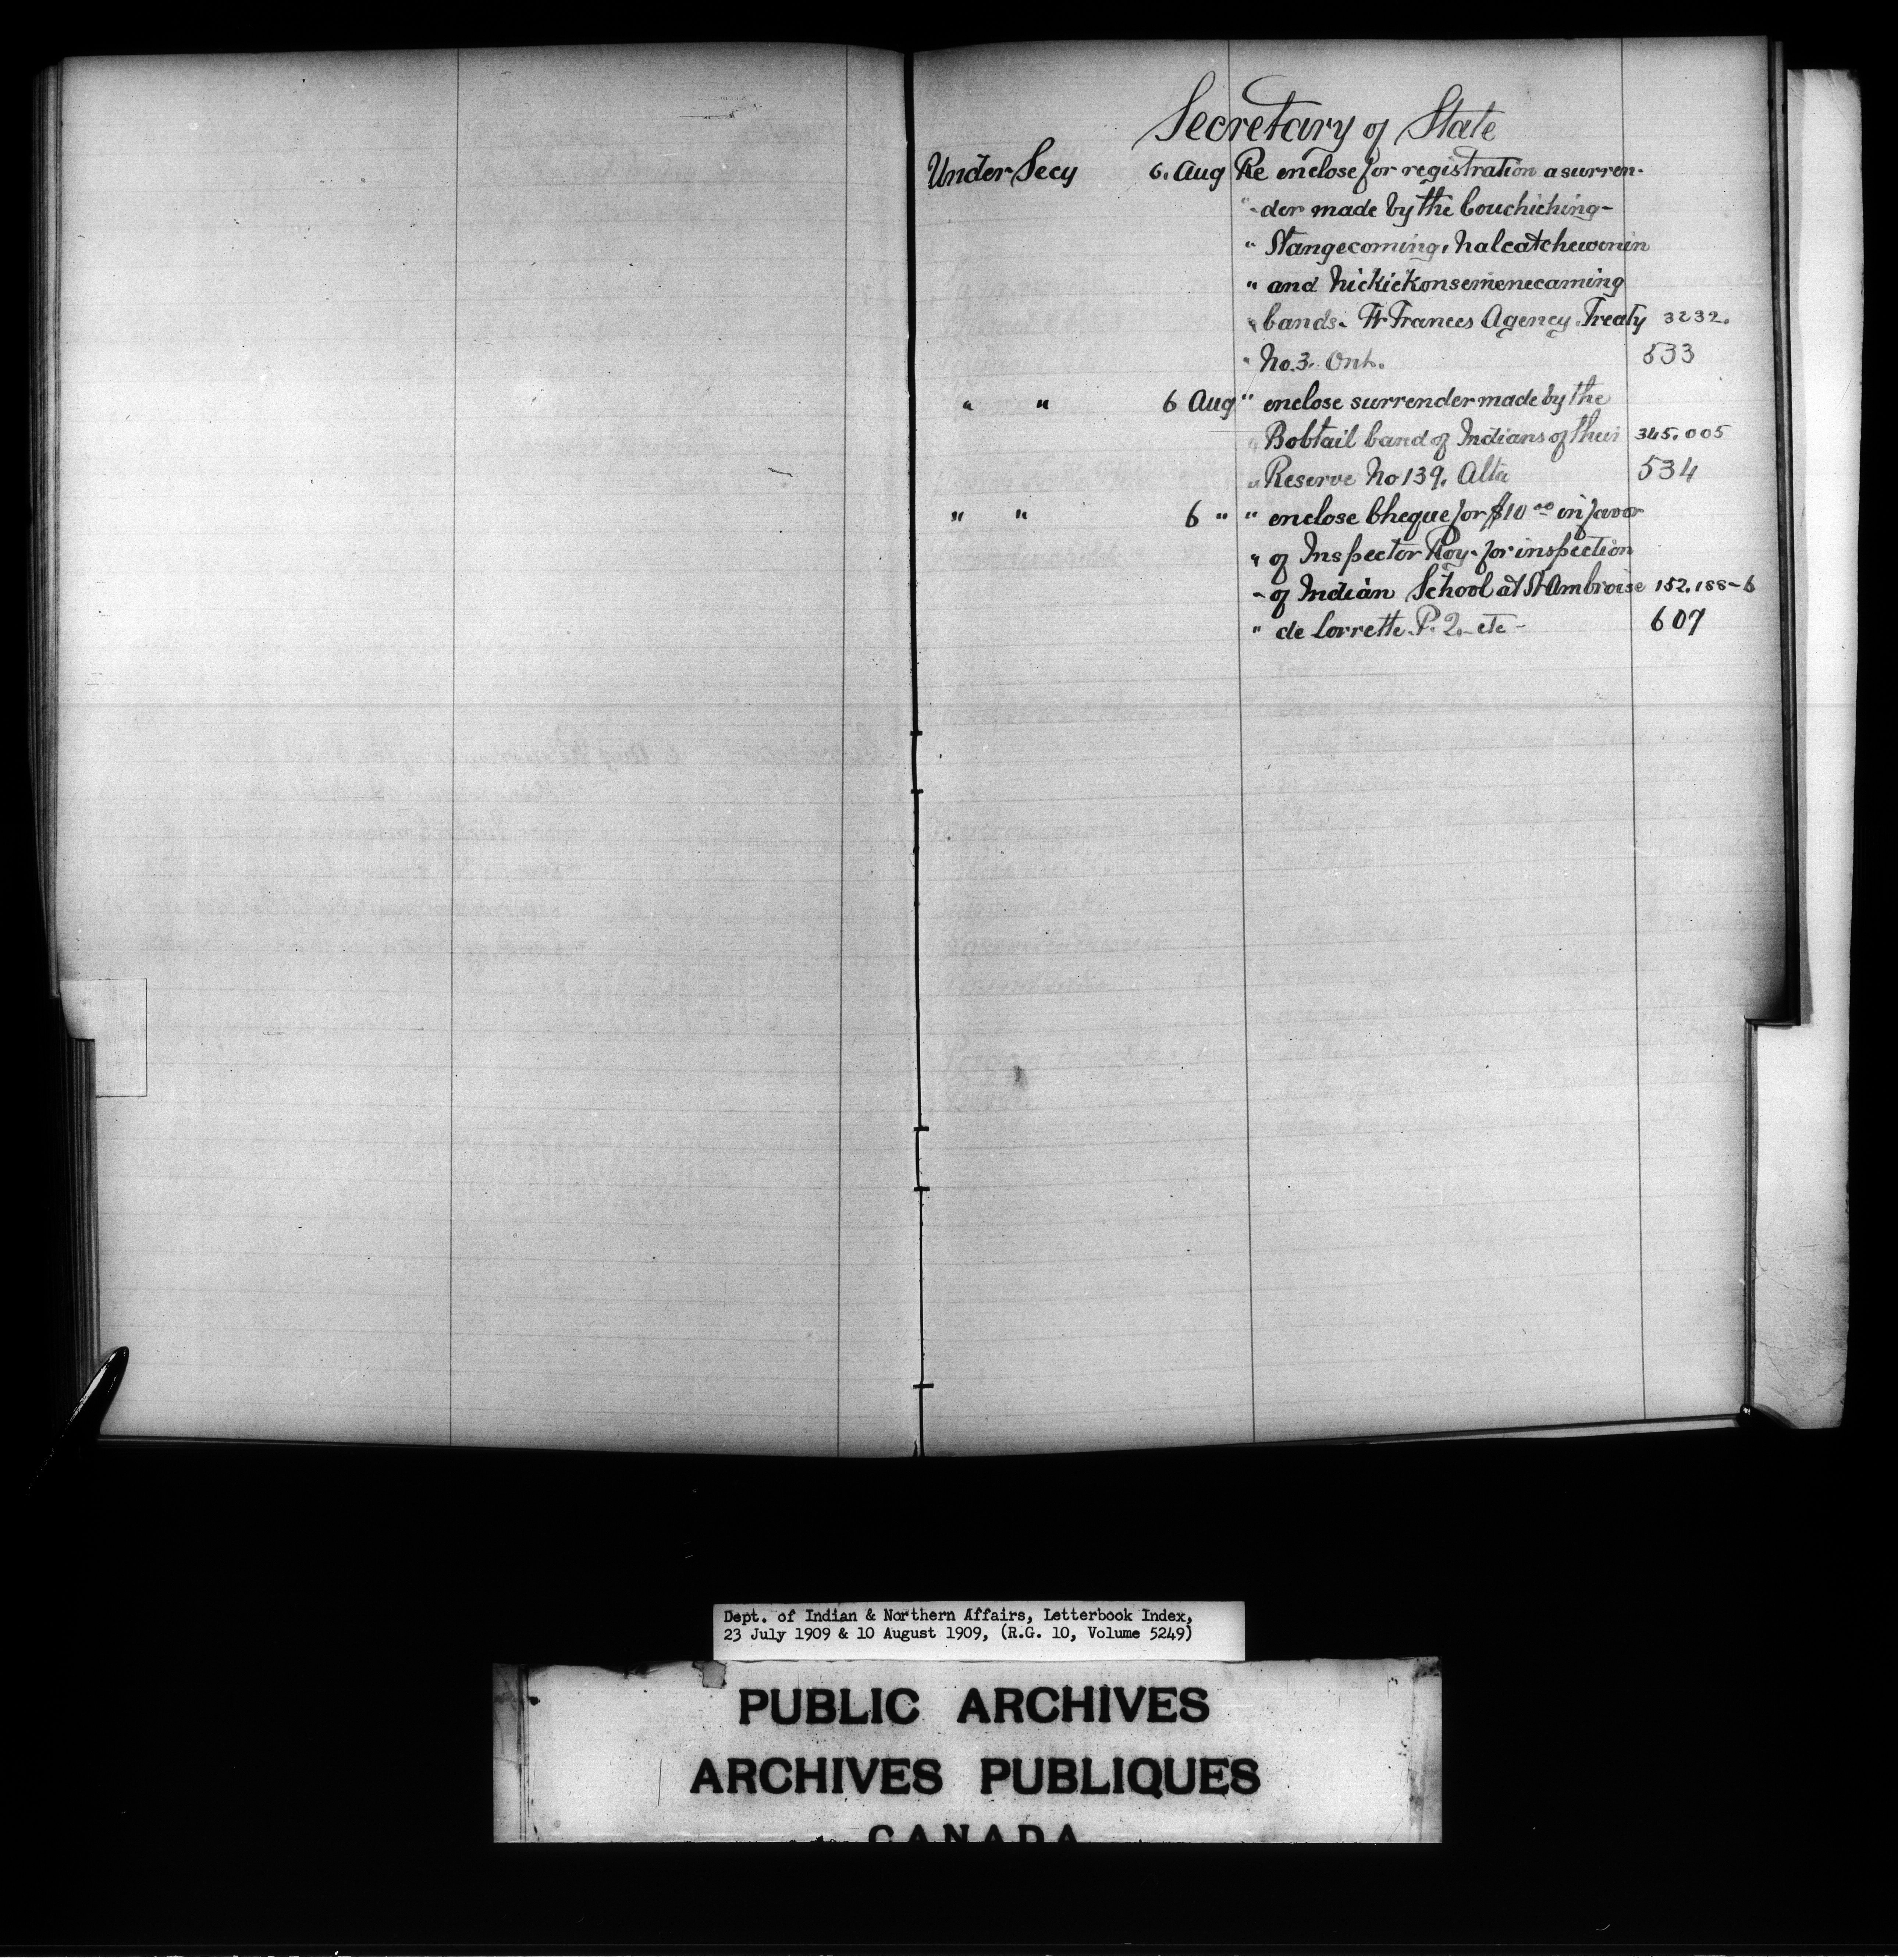 Secretary of State
Under Secy 6. Aug Re enclose for registration a surren-
"-der made by the Couchiching-
" Stangecoming, Nalcatchewonin
" and Nickickonsemenecaming
" bands. Ft Frances Agency. Treaty 3232.
" No. 3. Ont. 533
" " 6 Aug " enclose surrender made by the
" Bobtail band of Indians of their 345.005
" Reserve No 139. Alta 534
" " 6 " " enclose Cheque for $10 00 in favor
" of Inspector Roy. for inspection
" of Indian School at St Ambroise 152.188-6
" de Lorrette. P. Q. etc - 607
Dept. of Indian & Northern Affairs, Letterbook Index,
23 July 1909 & 10 August 1909, (R.G. 10, Volume 5249)
PUBLIC ARCHIVES
ARCHIVES PUBLIQUES
CANADA